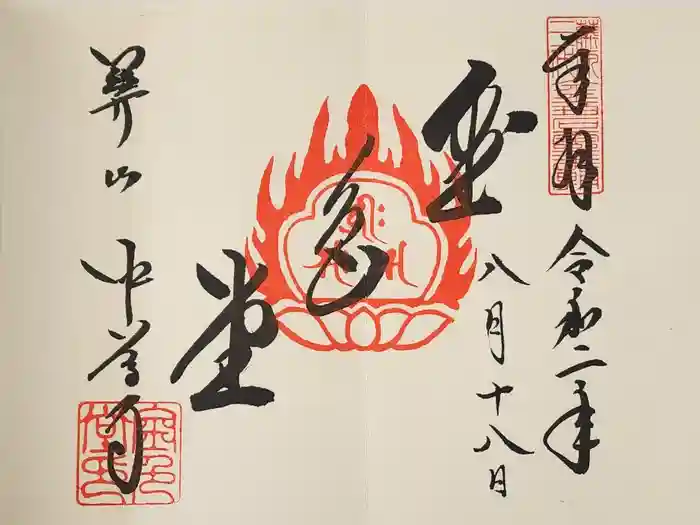 奉拝 令和二年
八月十八日
金色堂
関山 中尊寺